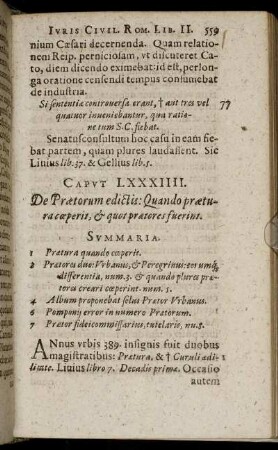 IVRIS CIVIL. ROM. LIB. II. 559
nium Cæsari decernenda. Quam relatio-
nem Reip. perniciosam, vt discuteret Ca-
to, diem dicendo eximebat id est, perlon-
ga oratione censendi tempus consumebat
de industria.
Si sententiæ controuersæ erant, † aut tres vel 77
quatuor inueniebantur, qua ratio-
ne tum S.C. fiebat.
Senatusconsultum hoc casu in eam fie-
bat partem, quam plures laudassent. Sic
Liuius lib. 37. & Gellius lib. 5.
CAPVT LXXXIIII.
De Prætorum edictis: Quando prætu-
ra cœperit, & quot prætores fuerint.
SVMMARIA.
1 Prætura quando cœperit.
2 Prætores duo: Vrbanus, & Peregrinus: eorumq́;
differentia, num. 3. & quando plures præ-
tores creari cœperint. num. 5.
4 Album proponebat solus Prætor Vrbanus.
6 Pomponij error in numero Prætorum.
7 Prætor fideicommissarius, tutelaris, nu. 8.
ANnus vrbis 389. insignis fuit duobus
magistratibus: Prætura, & † Curuli ædi- 1
litate. Liuius libro 7. Decadis primæ. Occasio
autem